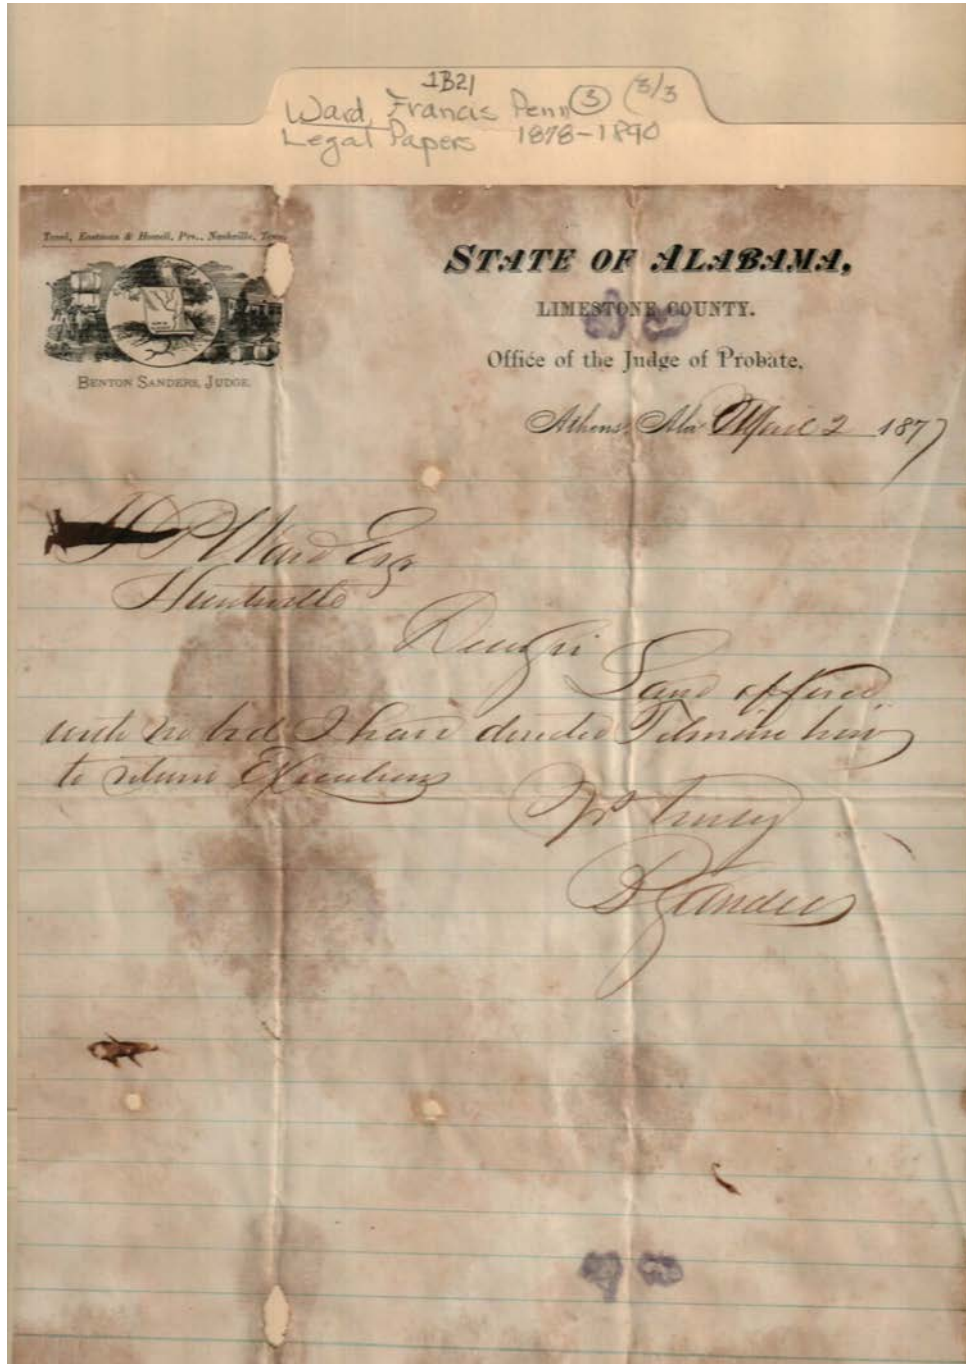 1B21
Ward, Francis Penn 3 (3/3
Legal Papers 1878-1890
Tavel, Eastman & Howell, Prs., Nashville, Tenn.
BENTON SANDERS, JUDGE.
STATE OF ALABAMA,
LIMESTONE COUNTY.
Office of the Judge of Probate,
Athens, Ala April 2 1877
F P Ward Esq
Huntsville
Dear Sir
Land offered,
with no bid I have directed
to return Execution
Yrs truly
B Sanders